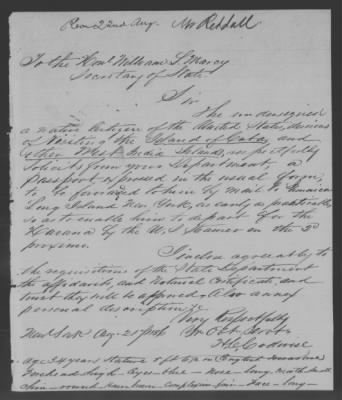 Recd 22nd Aug. Mr Reddall
To the Honl William L. Marcy
Secretary of State
Sir
The undersigned
a native citizen of the United States, desirous
of Visiting the Island of Cuba, and
other West India Islands, respectfully
solicits from your Department, a
passport expressed in the usual form,
to be forwarded to him by mail to Jamaica
Long Island New York, as early as practicable
so as to enable him to depart for the
Havana by the U.S. Steamer on the 2d
proximo.
I inclose agreeably to
the requisitions of the State Department
the affidavits, and Notarial Certificate, and
trust they will be approved. Also annex
personal description
Very Respectfully
New York Aug 21st
Yr Obt Servt
age 34 years Stature ft in English
Forehead high - Eyes - blue - Nose - long - Mouth small
Chin - round - Hair brown - Complexion fair - Face - long -